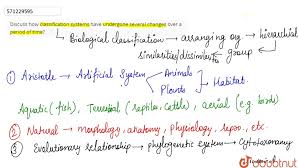 571229595
Discuss how classification systems have undergone several changes over a
period of time?
↳ Biological classification → arranging org → hierarchial
similarities/dissimilarities group
① Aristotle → Artificial System → Animals
→ Plants
Habitat.
Aquatic (fish), Terrestrial (reptiles, cattle), aerial (e.g. birds)
② Natural → morphology, anatomy, physiology, repro., etc
③ Evolutionary relationship → phylogenetic system → Cytotaxonomy
doubtnut